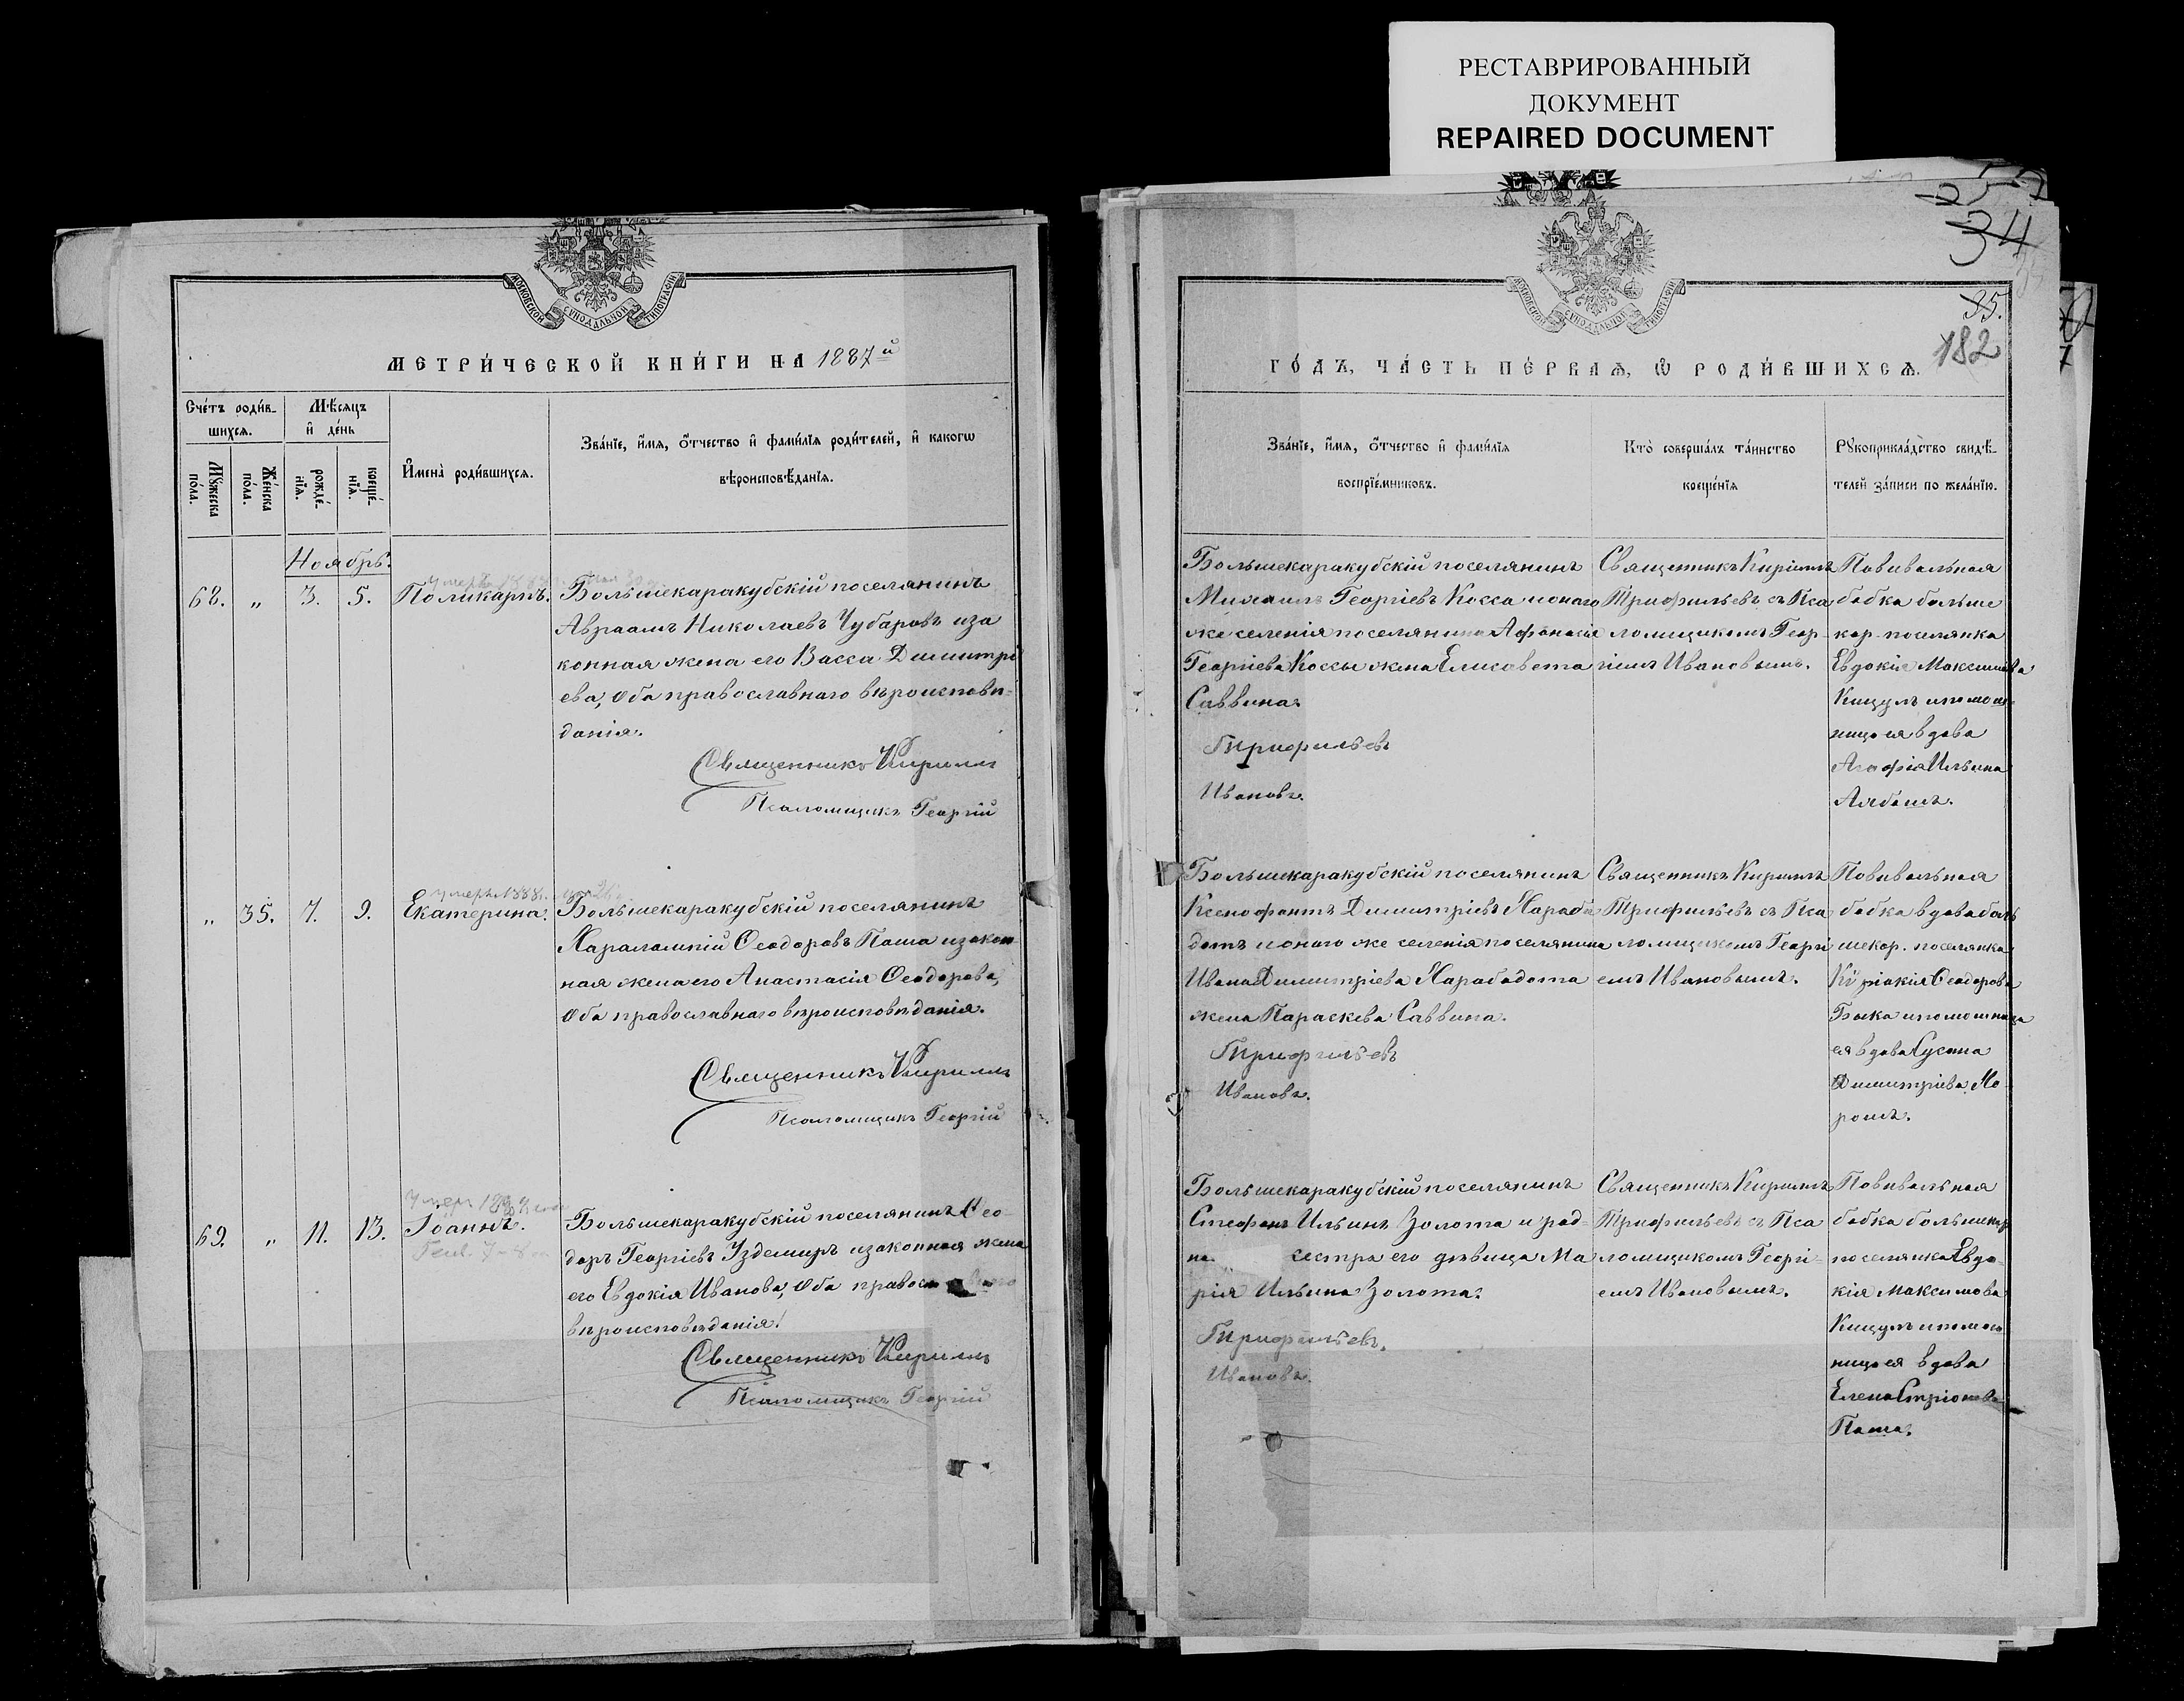 РЕСТАВРИРОВАННЫЙ
ДОКУМЕНТ
REPAIRED DOCUMENT
МОСКОВСКОЙ СѴНОДАЛЬНОЙ ТИПОГРАФІИ
МЕТРИ́ЧЕСКОЙ КНИ́ГИ НА 1887й
Сче́тъ роди́в-
шихсѧ.
Мѣ́сѧцъ
и҆ де́нь
Мꙋ́жеска по́ла.
Же́нска по́ла.
рожде́-
нїѧ.
креще́-
нїѧ.
И҆мена̀ роди́вшихсѧ.
Зва́нїе, и҆́мѧ, ѻ҆́тчество и҆ фами́лїѧ роди́телей, и҆ какогѡ
вѣроисповѣ́данїѧ.
Ноябрь.
68. „ 3. 5. Поликарпъ.
Большекаракубскій поселянинъ
Авраамъ Николаевъ Чубаровъ иза
конная жена его Васса Димитрі
ева, оба православнаго вѣроисповѣ-
данія.
Священникъ Кириллъ
Псаломщикъ Георгій
умерл. 1888
„ 35. 7. 9. Екатерина.
Большекаракубскій поселянинъ
Харалампій Ѳеодоровъ Паша изакон
ная жена его Анастасія Ѳеодорова,
оба православнаго вѣроисповѣданія.
Священникъ Кириллъ
Псаломщикъ Георгій
69. „ 11. 13. Іоаннъ.
Большекаракубскій поселянинъ Ѳео-
доръ Георгіевъ Уздемиръ изаконная жена
его Евдокія Иванова, оба православнаго
вѣроисповѣданія.
Священникъ Кириллъ
Псаломщикъ Георгій
34
35.
182
МОСКОВСКОЙ СѴНОДАЛЬНОЙ ТИПОГРАФІИ
ГО́ДЪ, ЧА́СТЬ ПЕ́РВАѦ, Ѡ҆ РОДИ́ВШИХСѦ.
Зва́нїе, и҆́мѧ, ѻ҆́тчество и҆ фами́лїѧ
воспрїе́мниковъ.
Кто̀ соверша́лъ та́инство
креще́нїѧ
Рꙋкоприкла́дство свидѣ́-
телей за́писи по жела́нїю.
Большекаракубскій поселянинъ
Михаилъ Георгіевъ Косса ионаго
же селенія поселянина Афанасія
Георгіева Коссы жена Елисавета
Саввина.
Трифильевъ
Ивановъ.
Священникъ Кириллъ
Трифильевъ съ Пса
ломщикомъ Геор-
гіемъ Ивановымъ.
Повивальная
бабка больше
кар. поселянка
Евдокія Максимова
Кицулъ ипомощ-
ница ея вдова
Агафія Ильина
Большекаракубскій поселянинъ
Ксенофонтъ Димитріевъ Харaба
датъ ионаго же селенія поселянина
Ивана Димитріева Харабадата
жена Параскева Саввина.
Трифильевъ
Ивановъ.
Священникъ Кириллъ
Трифильевъ съ Пса
ломщикомъ Георгі
емъ Ивановымъ.
Повивальная
бабка вдова боль
шекар. поселянка
Кѵріакія Ѳеодорова
Быка ипомошница
ея вдова Сусана
Димитріева Хо
рошъ.
Большекаракубскій поселянинъ
Стефанъ Ильинъ Золота и род-
на. сестра его дѣвица Ма
рія Ильина Золота.
Трифильевъ.
Ивановъ.
Священникъ Кириллъ
Трифильевъ съ Пса
ломщикомъ Георгі-
емъ Ивановымъ.
Повивальная
бабка большекар
поселянка Евдо-
кія Максимова
Кицулъ ипомощ
ница ея вдова
Елена
Паша.